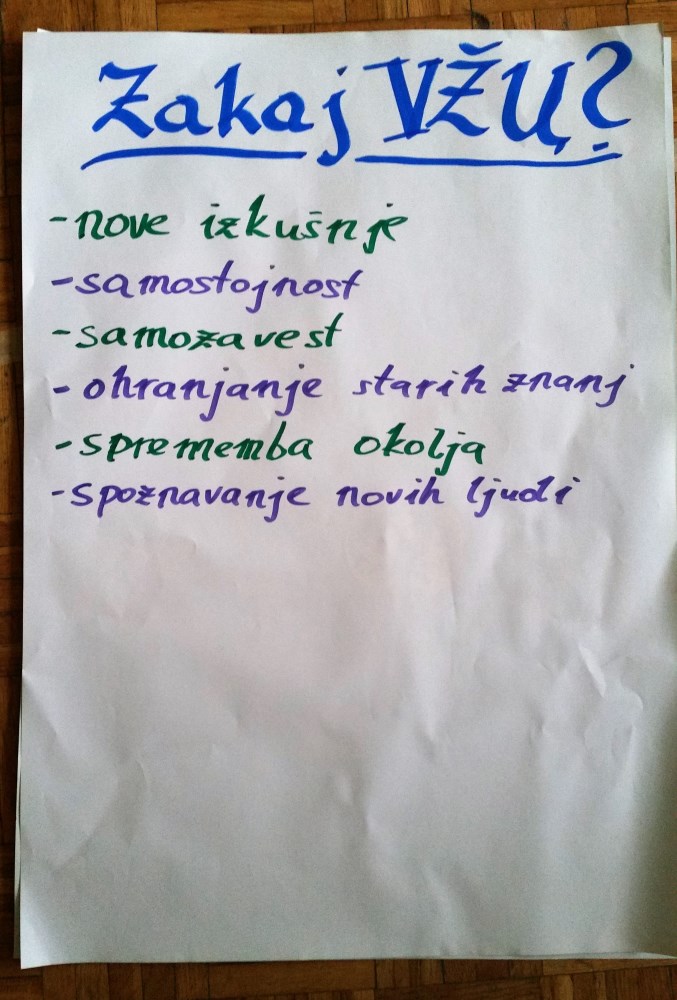 Zakaj VŽU?
-nove izkušnje
-samostojnost
-samozavest
-ohranjanje starih znanj
-sprememba okolja
-spoznavanje novih ljudi